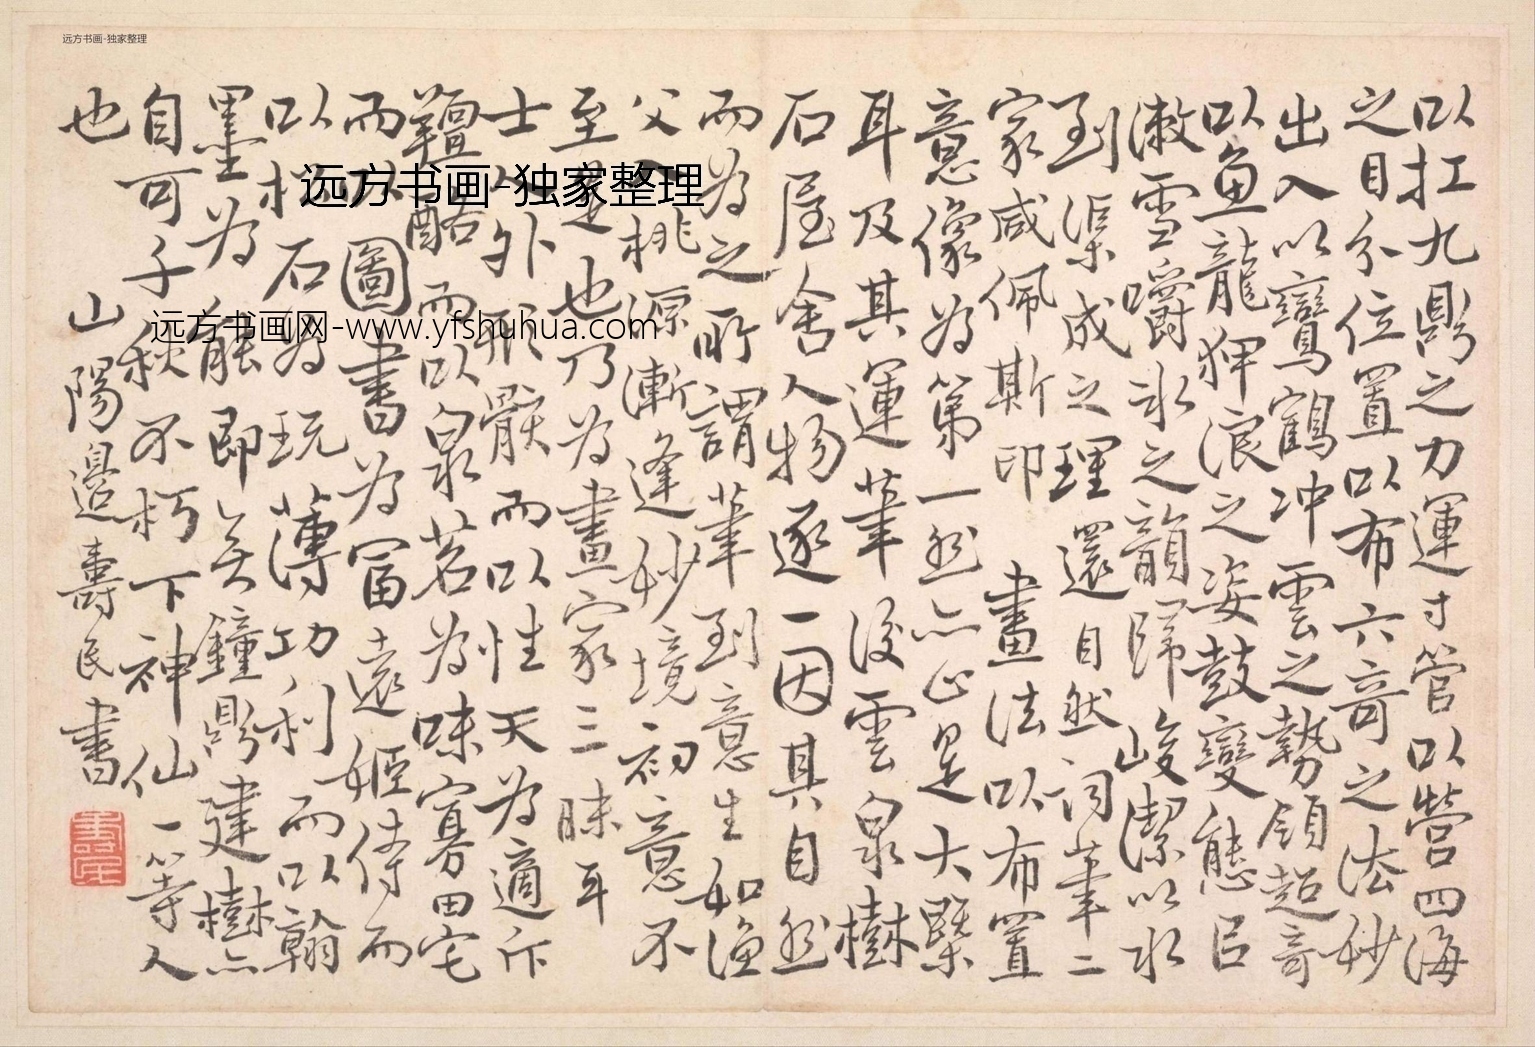 远方书画-独家整理
以扛九鼎之力運寸管以營四海
之目分位置以布六奇之法妙
出入以鸞鶴冲雲之勢領超奇
以魚龍狎浪之姿鼓變態以
漱雪嚼冰之韻歸峻潔以水
到渠成之理還自然詞華二
家咸佩斯印 畫法以布置
意像為第一然亦止是大槩
耳及其運筆後雲泉樹
石屋舍人物逐一因其自然
而為之所謂筆到意生如漁
父入桃源漸逢妙境初意不
至是也乃為畫家三昧耳
士人外形骸而以性天為適斥
羶酪而以泉茗為味寡田宅
而以圖書為富遠姬侍而
以松石為玩薄功利而以翰
墨為能即无鐘鼎建樹亦
自可千秋不朽下神仙一等人
也 山陽邉壽民書
壽民
远方书画-独家整理
远方书画网-www.yfshuhua.com